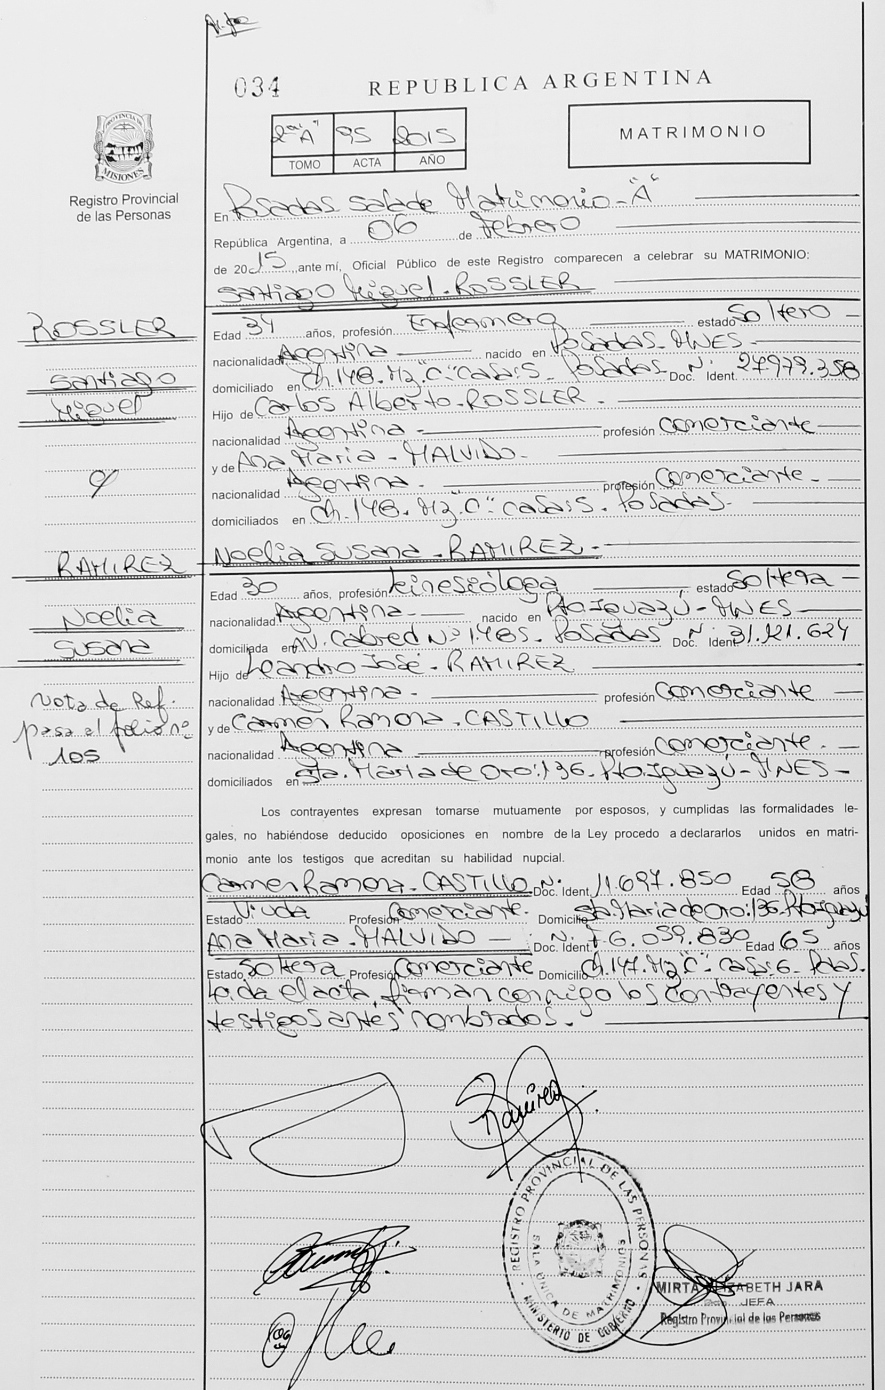 034
REPUBLICA ARGENTINA
2º "A" 95 2015
TOMO ACTA AÑO
MATRIMONIO
PROVINCIA DE MISIONES
Registro Provincial
de las Personas
En Posadas Sala de Matrimonio "A"
República Argentina, a 06 de febrero
de 2015, ante mí, Oficial Público de este Registro comparecen a celebrar su MATRIMONIO:
Santiago Miguel ROSSLER
ROSSLER
Santiago
Miguel
Edad 34 años, profesión Enfermero estado Soltero
nacionalidad Argentina nacido en Posadas - MNES
domiciliado en Ch. 148. Mz "C" Casa 5. Posadas Doc. Ident. Nº 27.979.358
Hijo de Carlos Alberto ROSSLER
nacionalidad Argentina profesión Comerciante
y de Ana Maria MALVIDO
nacionalidad Argentina profesión Comerciante
domiciliados en Ch. 148. Mz "C" Casa 5. Posadas
Noelia Susana RAMIREZ
RAMIREZ
Noelia
Susana
Edad 30 años, profesión Kinesióloga estado Soltera
nacionalidad Argentina nacido en Pto. Iguazú - MNES
domiciliada en AV. Cabred Nº 1485. Posadas Doc. Ident. Nº 31.121.624
Hijo de Leandro José RAMIREZ
nacionalidad Argentina profesión Comerciante
y de Carmen Ramona CASTILLO
nacionalidad Argentina profesión Comerciante
domiciliados en Sta. Maria de Oro: 136. Pto. Iguazú - MNES
Nota de Ref.
pasa al folio nº
105
Los contrayentes expresan tomarse mutuamente por esposos, y cumplidas las formalidades le-
gales, no habiéndose deducido oposiciones en nombre de la Ley procedo a declararlos unidos en matri-
monio ante los testigos que acreditan su habilidad nupcial.
Carmen Ramona CASTILLO Doc. Ident. Nº 11.697.850 Edad 58 años
Estado Viuda Profesión Comerciante Domicilio Sta Maria de Oro: 136. Pto Iguazú
Ana Maria MALVIDO Doc. Ident. Nº F 6.059.830 Edad 65 años
Estado Soltera Profesión Comerciante Domicilio Ch. 147. Mz "C" Casa 6 Pdas.
Leída el acta, firman conmigo los contrayentes y
testigos antes nombrados.
Ramirez
REGISTRO PROVINCIAL DE LAS PERSONAS
SALA UNICA DE MATRIMONIOS
MINISTERIO DE GOBIERNO
MIRTA ELIZABETH JARA
JEFA
Registro Provincial de las Personas